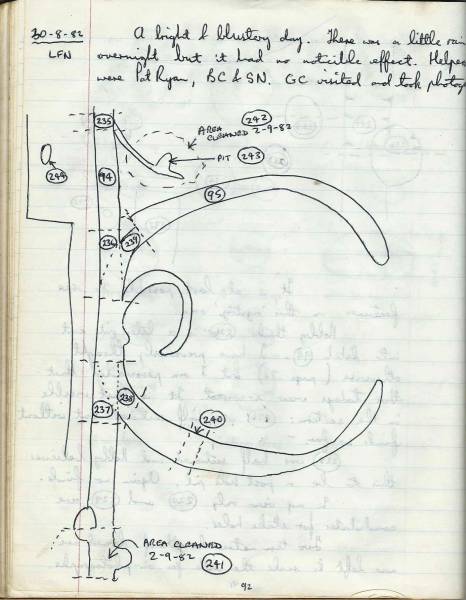 30-8-82 A bright & blustery day. There was a little rain
LFN overnight but it had no noticible effect. Helpers
were Pat Ryan, BC & SN. GC visited and took photog
235
242
AREA
CLEANED 2-9-82
PIT 243
244
94
95
236
239
237
238
240
AREA CLEANED
2-9-82
241
"92"